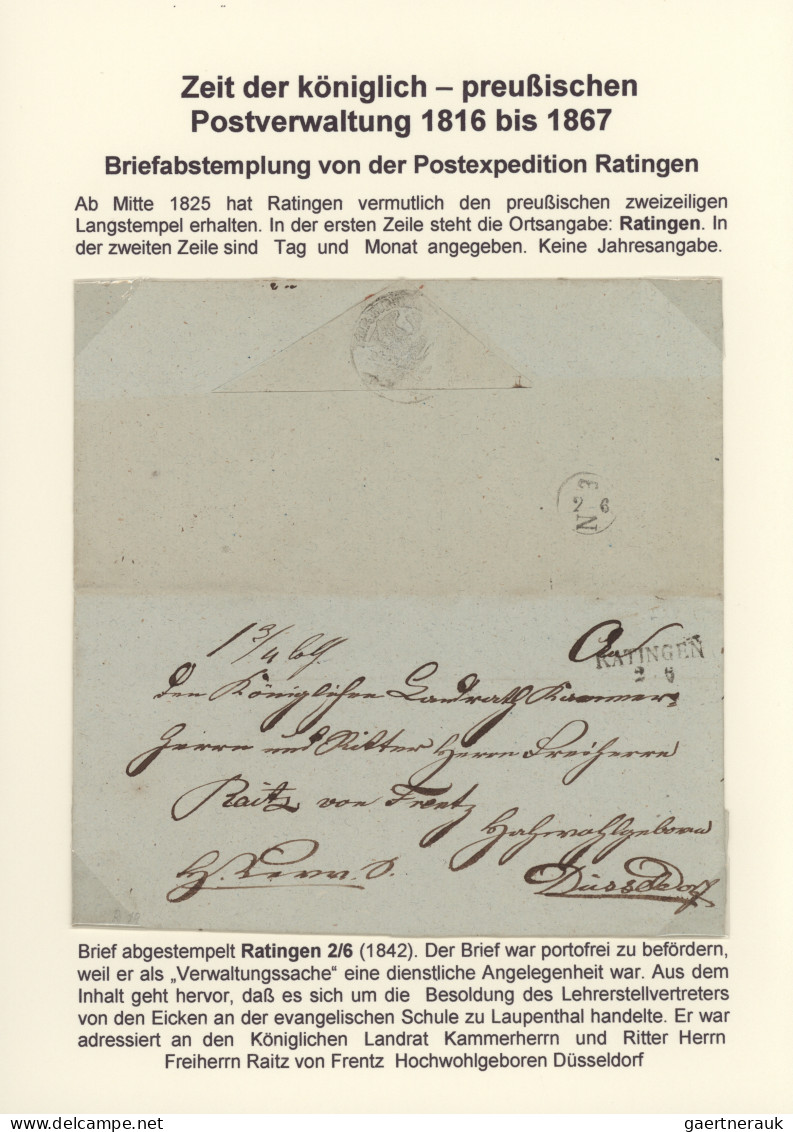 Zeit der königlich – preußischen
Postverwaltung 1816 bis 1867
Briefabstemplung von der Postexpedition Ratingen
Ab Mitte 1825 hat Ratingen vermutlich den preußischen zweizeiligen
Langstempel erhalten. In der ersten Zeile steht die Ortsangabe: Ratingen. In
der zweiten Zeile sind Tag und Monat angegeben. Keine Jahresangabe.
3
2 6
N
1 3/4
An
RATINGEN
2 6
den Königlichen Landrath Kammer-
herrn und Ritter Herrn Freiherrn
Raitz von Frentz
Hochwohlgeboren
Düsseldorf
Brief abgestempelt Ratingen 2/6 (1842). Der Brief war portofrei zu befördern,
weil er als „Verwaltungssache“ eine dienstliche Angelegenheit war. Aus dem
Inhalt geht hervor, daß es sich um die Besoldung des Lehrerstellvertreters
von den Eicken an der evangelischen Schule zu Laupenthal handelte. Er war
adressiert an den Königlichen Landrat Kammerherrn und Ritter Herrn
Freiherrn Raitz von Frentz Hochwohlgeboren Düsseldorf
www.delcampe.net
gaertnerauk